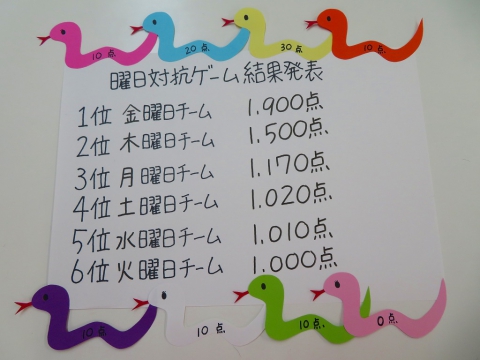 10点
20点
30点
10点
曜日対抗ゲーム結果発表
1位 金曜日チーム 1.900点
2位 木曜日チーム 1.500点
3位 月曜日チーム 1.170点
4位 土曜日チーム 1.020点
5位 水曜日チーム 1.010点
6位 火曜日チーム 1.000点
10点
10点
10点
0点